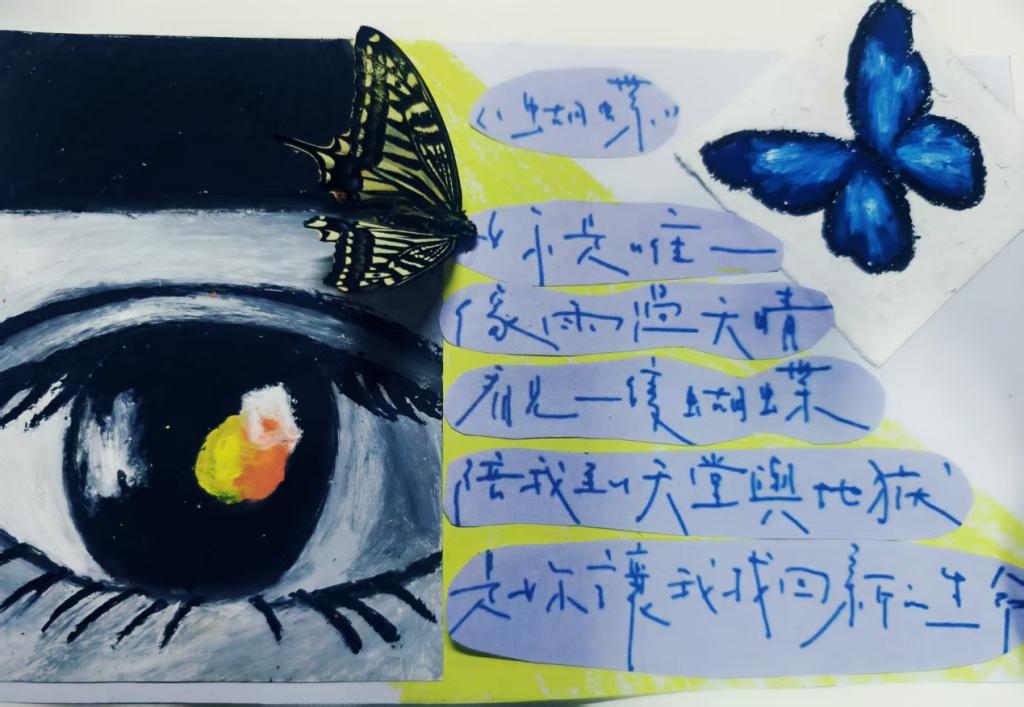 《蝴蝶》
妳是唯一
像雨過天晴
看見一隻蝴蝶
陪我到天堂與地獄
是妳讓我找回新之生命